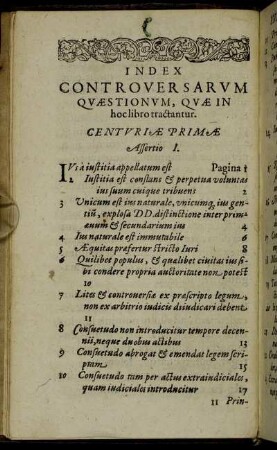 INDEX
CONTROVERSARVM
QVÆSTIONVM, QVÆ IN
hoc libro tractantur.
CENTVRIÆ PRIMÆ
Assertio I.
IVs à iustitia appellatum est Pagina 1
2 Iustitia est constans & perpetua voluntas
ius suum cuique tribuens 2
3 Vnicum est ius naturale, vnicumq, ius gen-
tiũ, explosa DD. distinctione inter prim-
æuum & secundarium ius 4
4 Ius naturale est immutabile 6
5 Æquitas præfertur stricto Iuri 8
6 Quilibet populus, & quælibet ciuitas ius si-
bi condere propria auctoritate non potest
10
7 Lites & controuersiæ ex præscripto legum,
non ex arbitrio iudicis diiudicari debent
11
8 Consuetudo non introducitur tempore decen-
nii, neque duobus actibus 13
9 Consuetudo abrogat & emendat legem scri-
ptam 15
10 Consuetudo tam per actus extraiudiciales,
quam iudiciales introducitur 17
11 Prin-